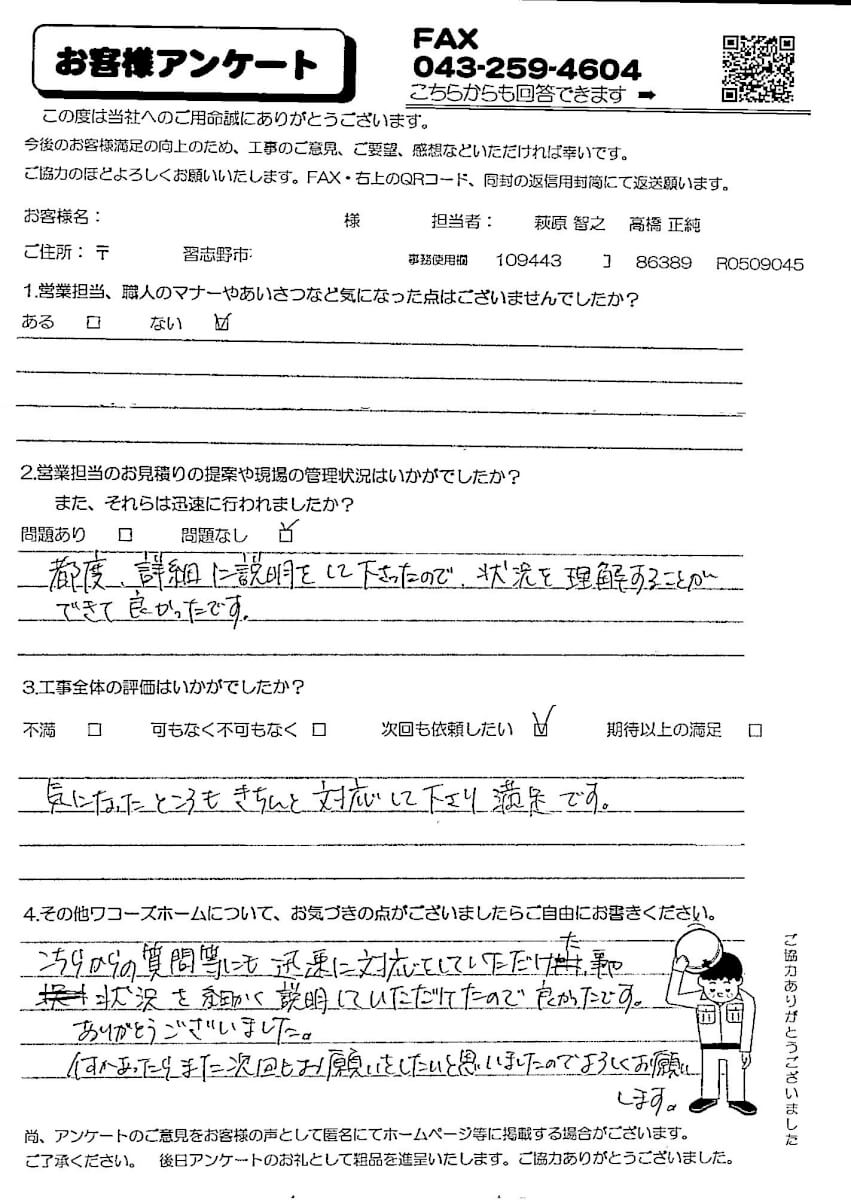 お客様アンケート
FAX
043-259-4604
こちらからも回答できます ➡
この度は当社へのご用命誠にありがとうございます。
今後のお客様満足の向上のため、工事のご意見、ご要望、感想などいただければ幸いです。
ご協力のほどよろしくお願いいたします。FAX・右上のQRコード、同封の返信用封筒にて返送願います。
お客様名： 様 担当者： 萩原 智之 高橋 正純
ご住所：〒 習志野市 事務使用欄 109443 86389 R0509045
1.営業担当、職人のマナーやあいさつなど気になった点はございませんでしたか？
ある □ ない ☑
2.営業担当のお見積りの提案や現場の管理状況はいかがでしたか？
また、それらは迅速に行われましたか？
問題あり □ 問題なし ☑
都度、詳細に説明をして下さったので、状況を理解することが
できて良かったです。
3.工事全体の評価はいかがでしたか？
不満 □ 可もなく不可もなく □ 次回も依頼したい ☑ 期待以上の満足 □
気になったところもきちんと対応して下さり満足です。
4.その他ワコーズホームについて、お気づきの点がございましたらご自由にお書きください。
こちらからの質問等にも迅速に対応をしていただけた
状況を細かく説明していただけたので良かったです。
ありがとうございました。
何かあったらまた次回もお願いをしたいと思いましたのでよろしくお願い
します。
ご協力ありがとうございました
尚、アンケートのご意見をお客様の声として匿名にてホームページ等に掲載する場合がございます。
ご了承ください。 後日アンケートのお礼として粗品を進呈いたします。ご協力ありがとうございました。